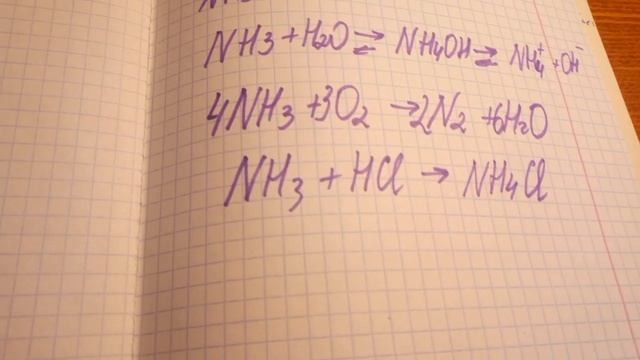 NH3 + H2O ⇌ NH4OH ⇌ NH4+ + OH-
4NH3 + 3O2 → 2N2 + 6H2O
NH3 + HCl → NH4Cl